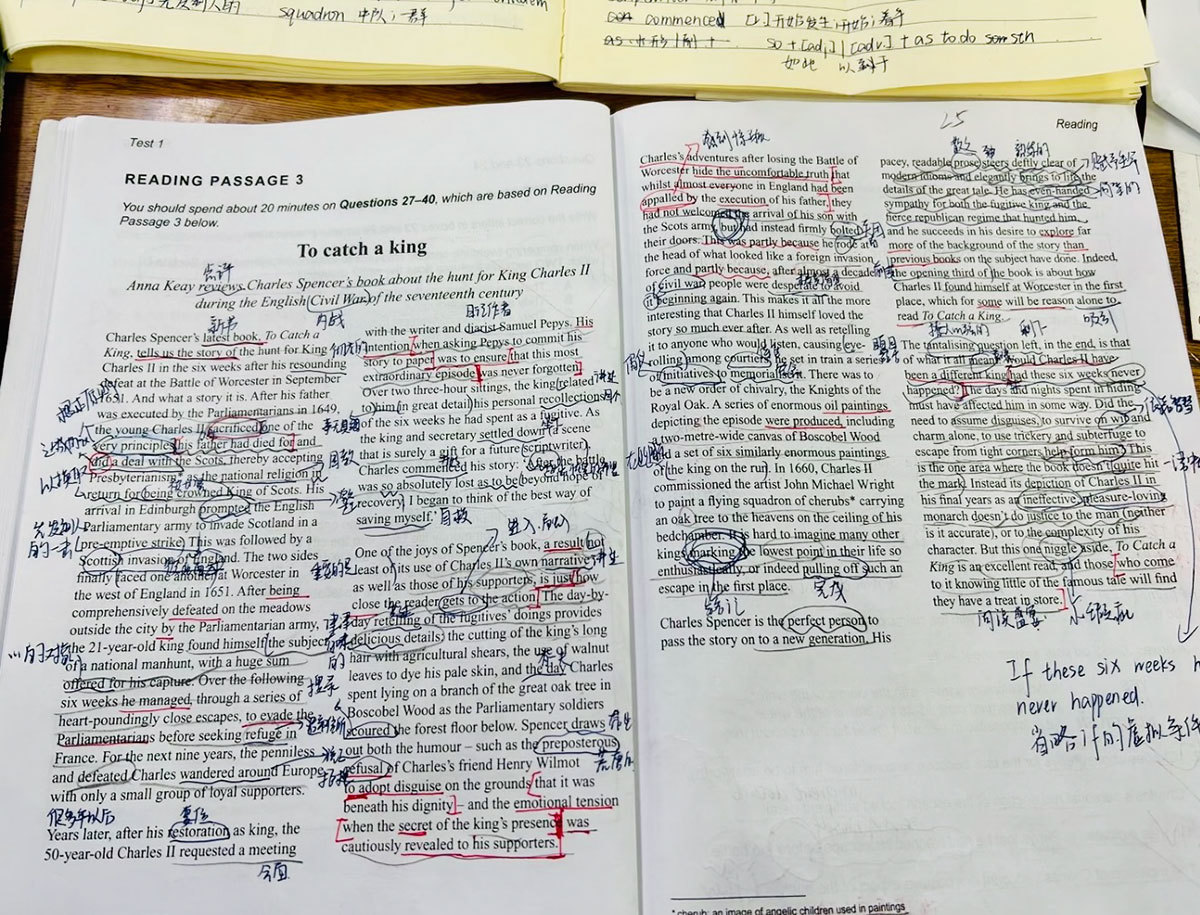 squadron 中队；群
commenced [v.] 开始发生；开始；着手
so + [adj.] | [adv.] + as to do sth
如此 以到于
Test 1
READING PASSAGE 3
You should spend about 20 minutes on Questions 27–40, which are based on Reading
Passage 3 below.
To catch a king
Anna Keay reviews Charles Spencer's book about the hunt for King Charles II
during the English Civil War of the seventeenth century
内战
Charles Spencer's latest book, To Catch a
King, tells us the story of the hunt for King
Charles II in the six weeks after his resounding
defeat at the Battle of Worcester in September
1651. And what a story it is. After his father
was executed by the Parliamentarians in 1649,
the young Charles II sacrificed one of the
very principles his father had died for and
did a deal with the Scots, thereby accepting
Presbyterianism as the national religion in
return for being crowned King of Scots. His
arrival in Edinburgh prompted the English
Parliamentary army to invade Scotland in a
pre-emptive strike. This was followed by a
Scottish invasion of England. The two sides
finally faced one another at Worcester in
the west of England in 1651. After being
comprehensively defeated on the meadows
outside the city by the Parliamentarian army,
the 21-year-old king found himself the subject
of a national manhunt, with a huge sum
offered for his capture. Over the following
six weeks he managed, through a series of
heart-poundingly close escapes, to evade the
Parliamentarians before seeking refuge in
France. For the next nine years, the penniless
and defeated Charles wandered around Europe
with only a small group of loyal supporters.
很多年以后 复位
Years later, after his restoration as king, the
50-year-old Charles II requested a meeting
会面
with the writer and diarist Samuel Pepys. His
intention when asking Pepys to commit his
story to paper was to ensure that this most
extraordinary episode was never forgotten.
Over two three-hour sittings, the king related
to him in great detail his personal recollections
of the six weeks he had spent as a fugitive. As
the king and secretary settled down (a scene
that is surely a gift for a future scriptwriter),
Charles commenced his story: 'After the battle
was so absolutely lost as to be beyond hope of
recovery, I began to think of the best way of
saving myself.'
自救
One of the joys of Spencer's book, a result not
least of its use of Charles II's own narrative
as well as those of his supporters, is just how
close the reader gets to the action. The day-by-
day retelling of the fugitives' doings provides
delicious details: the cutting of the king's long
hair with agricultural shears, the use of walnut
leaves to dye his pale skin, and the day Charles
spent lying on a branch of the great oak tree in
Boscobel Wood as the Parliamentary soldiers
scoured the forest floor below. Spencer draws
out both the humour – such as the preposterous
refusal of Charles's friend Henry Wilmot
to adopt disguise on the grounds that it was
beneath his dignity – and the emotional tension
when the secret of the king's presence was
cautiously revealed to his supporters.
25
Reading
Charles's adventures after losing the Battle of
Worcester hide the uncomfortable truth that
whilst almost everyone in England had been
appalled by the execution of his father, they
had not welcomed the arrival of his son with
the Scots army, but had instead firmly bolted
their doors. This was partly because he rode at
the head of what looked like a foreign invasion
force and partly because, after almost a decade
of civil war, people were desperate to avoid
it beginning again. This makes it all the more
interesting that Charles II himself loved the
story so much ever after. As well as retelling
it to anyone who would listen, causing eye-
rolling among courtiers, he set in train a series
of initiatives to memorialise it. There was to
be a new order of chivalry, the Knights of the
Royal Oak. A series of enormous oil paintings
depicting the episode were produced, including
a two-metre-wide canvas of Boscobel Wood
and a set of six similarly enormous paintings
of the king on the run. In 1660, Charles II
commissioned the artist John Michael Wright
to paint a flying squadron of cherubs* carrying
an oak tree to the heavens on the ceiling of his
bedchamber. It is hard to imagine many other
kings marking the lowest point in their life so
enthusiastically, or indeed pulling off such an
escape in the first place.
标记 完成
Charles Spencer is the perfect person to
pass the story on to a new generation. His
pacey, readable prose steers deftly clear of
modern idioms and elegantly brings to life the
details of the great tale. He has even-handed
sympathy for both the fugitive king and the
fierce republican regime that hunted him,
and he succeeds in his desire to explore far
more of the background of the story than
previous books on the subject have done. Indeed,
the opening third of the book is about how
Charles II found himself at Worcester in the first
place, which for some will be reason alone to
read To Catch a King.
The tantalising question left, in the end, is that
of what it all meant. Would Charles II have
been a different king had these six weeks never
happened? The days and nights spent in hiding
must have affected him in some way. Did the
need to assume disguises, to survive on wit and
charm alone, to use trickery and subterfuge to
escape from tight corners help form him? This
is the one area where the book doesn't quite hit
the mark. Instead its depiction of Charles II in
his final years as an ineffective, pleasure-loving
monarch doesn't do justice to the man (neither
is it accurate), or to the complexity of his
character. But this one niggle aside, To Catch a
King is an excellent read, and those who come
to it knowing little of the famous tale will find
they have a treat in store.
If these six weeks h
never happened.
省略 if 的虚拟条件
* cherub: an image of angelic children used in paintings